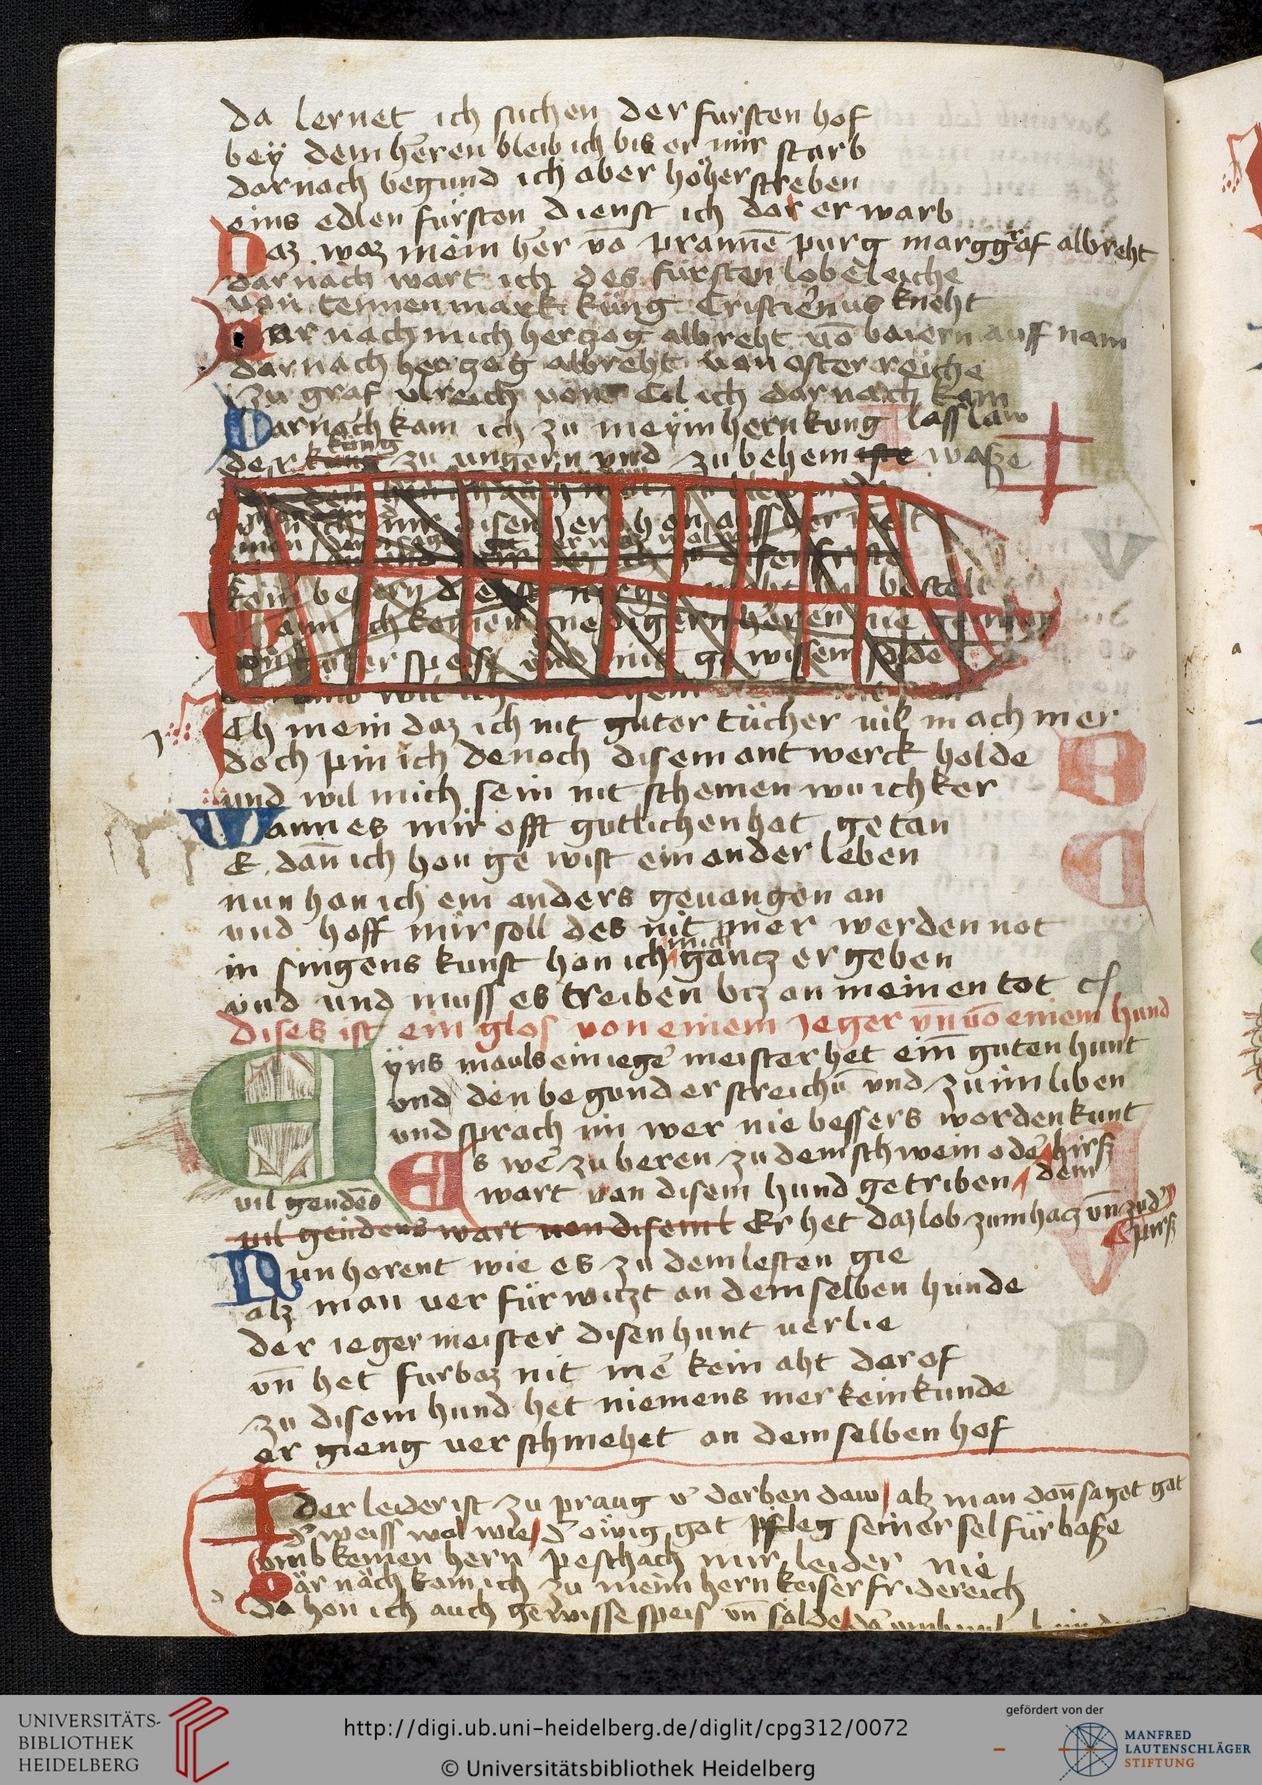 da lernet ich suchen der fursten hof
bey dem heren bleib ich bis er mir starb
darnach begund ich aber höher streben
eins edlen fürsten dienst ich dar er warb
Daz waz mein her vō prannē purg marggraf albreht
darnach wart ich des fürsten lobeleiche
von tennenmark küng Cristiernus kneht
Darnach mich herczog albreht vō baiern auff nam
darnach herczog albreht von osterreiche
zu graf ulreich von Cil ich darnach kam
Darnach kam ich zu meym hern kung lasslaw
der küng zu ungern und zu behem waße
kein bessern dienst
Wann ich keinen nie
Ich mein daz ich nit guter tücher vil mach mer
doch pin ich denoch disem antwerck holde
und wil mich sein nit schemen wo ich ker
Wann es mir offt gutlichen hat getan
E dañ ich hon ge wist ein ander leben
nun hon ich ein anders gevangen an
und hoff mir soll des nit mer werden not
in singens kunst hon ich mich gancz er geben
und und muss es treiben biz an meinen tot
Dises ist ein glos von einem Jeger vn̄ vō einem hund
Eyns mauls ein iegē meister het ein̄ guten hunt
und den begund er streichē und zu im liben
und sprach im wer nie bessers worden kunt
Es wē zu beren zu dem schwein odē hirß
dem
wart von disem hund getriben
vil gendēs
vil gendens wart von disem Er het daz lob zum hacz vn̄ zud
pirß
Nun horent wie es zu dem lesten gie
alz man ver fürwiczt an dem selben hunde
der ieger meister disen hunt verlie
vn̄ het furbaz nit mē kein aht darof
zu disem hund het niemens mer kein kunde
er gieng verschmehet an dem selben hof
der leider ist zu praug v̄ dorben daw alz man don̄ saget got
d̄ weiss wol wie d̄ öwig got pfleg seiner sel fürbaße
umb keinen hern peschach mir leider nie
Där näch kam ich zu meim hern keiser fridereich
da hon ich auch gewisse speis vn̄ solde
UNIVERSITÄTS-
BIBLIOTHEK
HEIDELBERG
http://digi.ub.uni-heidelberg.de/diglit/cpg312/0072
© Universitätsbibliothek Heidelberg
gefördert von der
MANFRED
LAUTENSCHLÄGER
STIFTUNG